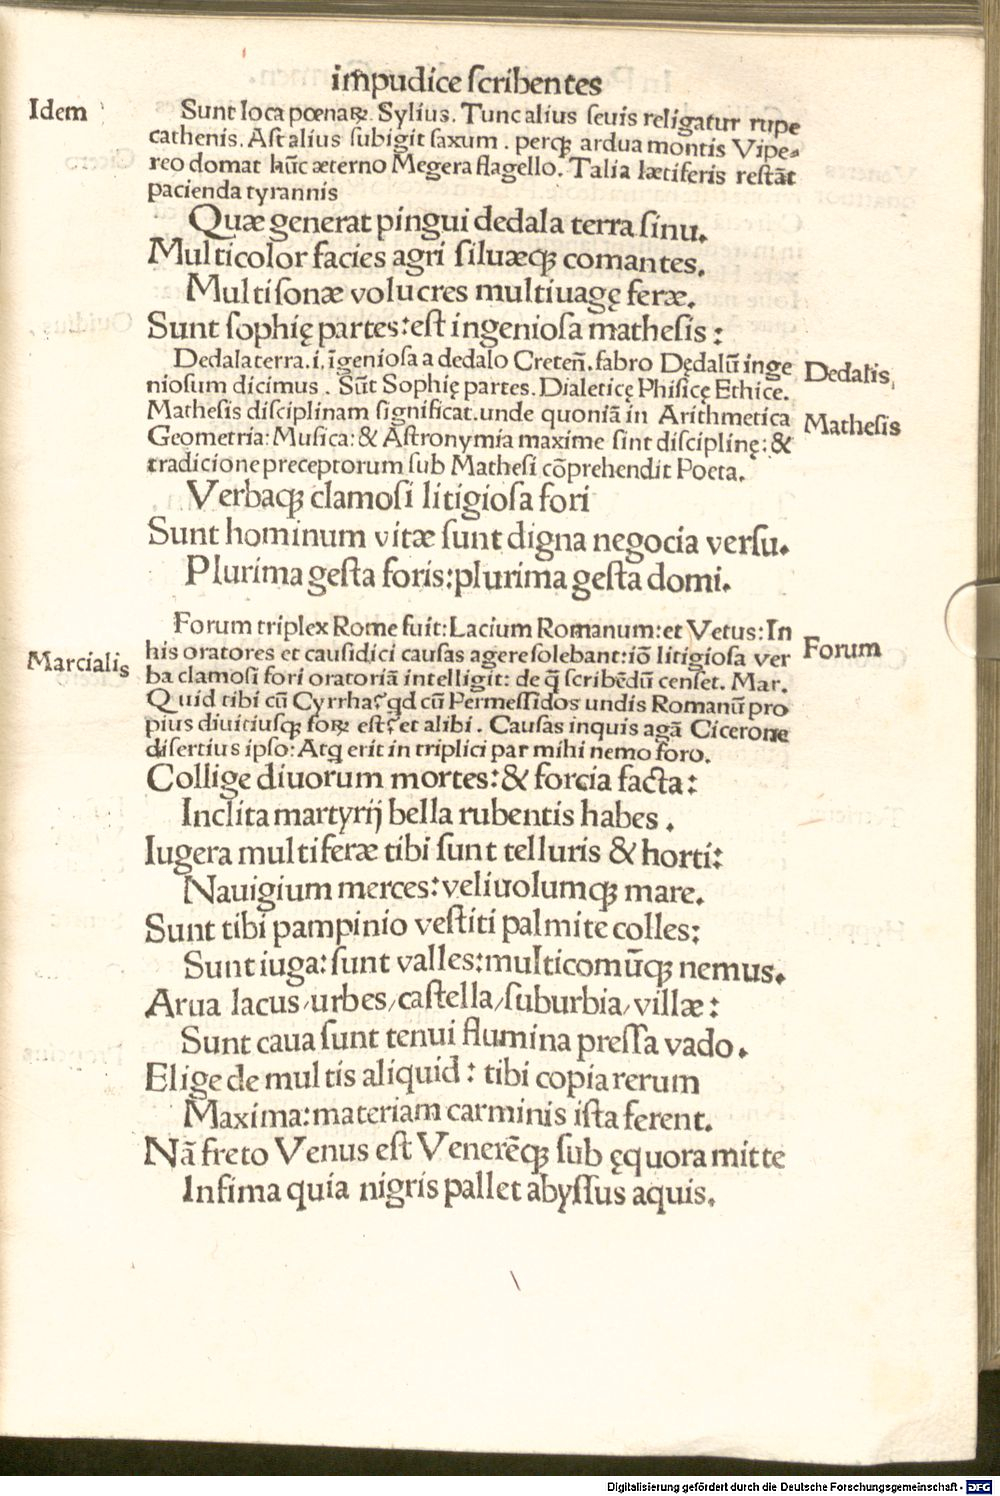 imp̄udice ſcribentes
Idem
Sunt loca pœnaꝝ. Sylius. Tunc alius ſeuis religatur rupe
cathenis. Aſt alius ſubigit ſaxum . perqꝫ ardua montis Vipe⸗
reo domat hūc æterno Megera flagello. Talia lætiferis reſtāt
pacienda tyrannis
Quæ generat pingui dedala terra ſinu.
Multicolor facies agri ſiluæqꝫ comantes.
Multiſonæ volucres multiuagę feræ.
Sunt ſophię partes: eſt ingenioſa matheſis :
Dedala terra .i. īgenioſa a dedalo Creten̄. fabro Dędalū inge
nioſum dicimus . Sūt Sophię partes. Dialeticę Phiſicę Ethice.
Dedalis
Matheſis diſciplinam ſignificat. unde quoniā in Arithmetica
Matheſis
Geometria: Muſica: & Aſtronymia maxime ſint diſciplinę: &
tradicione preceptorum ſub Matheſi cōprehendit Poeta.
Verbaqꝫ clamoſi litigioſa fori
Sunt hominum vitæ ſunt digna negocia verſu.
Plurima geſta foris: plurima geſta domi.
Forum triplex Rome fuit: Lacium Romanum: et Vetus: In
his oratores et cauſidici cauſas agere ſolebant: iō litigioſa ver
Forum
Marcialis
ba clamoſi fori oratoriā intelligit: de q̄ ſcribēdū cenſet. Mar.
Quid tibi cū Cyrrha? qd cū Permeſſidos undis Romanū pro
pius diuitiuſqꝫ foꝝ eſt? et alibi . Cauſas inquis agā Cicerone
diſertius ipſo: Atq erit in triplici par mihi nemo foro.
Collige diuorum mortes: & forcia facta:
Inclita martyrij bella rubentis habes .
Iugera multiferæ tibi ſunt telluris & horti:
Nauigium merces: veliuolumqꝫ mare.
Sunt tibi pampinio veſtiti palmite colles:
Sunt iuga: ſunt valles: multicomūqꝫ nemus.
Arua lacus/urbes/caſtella/ſuburbia/villæ :
Sunt caua ſunt tenui flumina preſſa vado.
Elige de multis aliquid : tibi copia rerum
Maxima: materiam carminis iſta ferent.
Nā freto Venus eſt Venerēqꝫ ſub ęquora mitte
Infima quia nigris pallet abyſſus aquis.
Digitalisierung gefördert durch die Deutsche Forschungsgemeinschaft - DFG